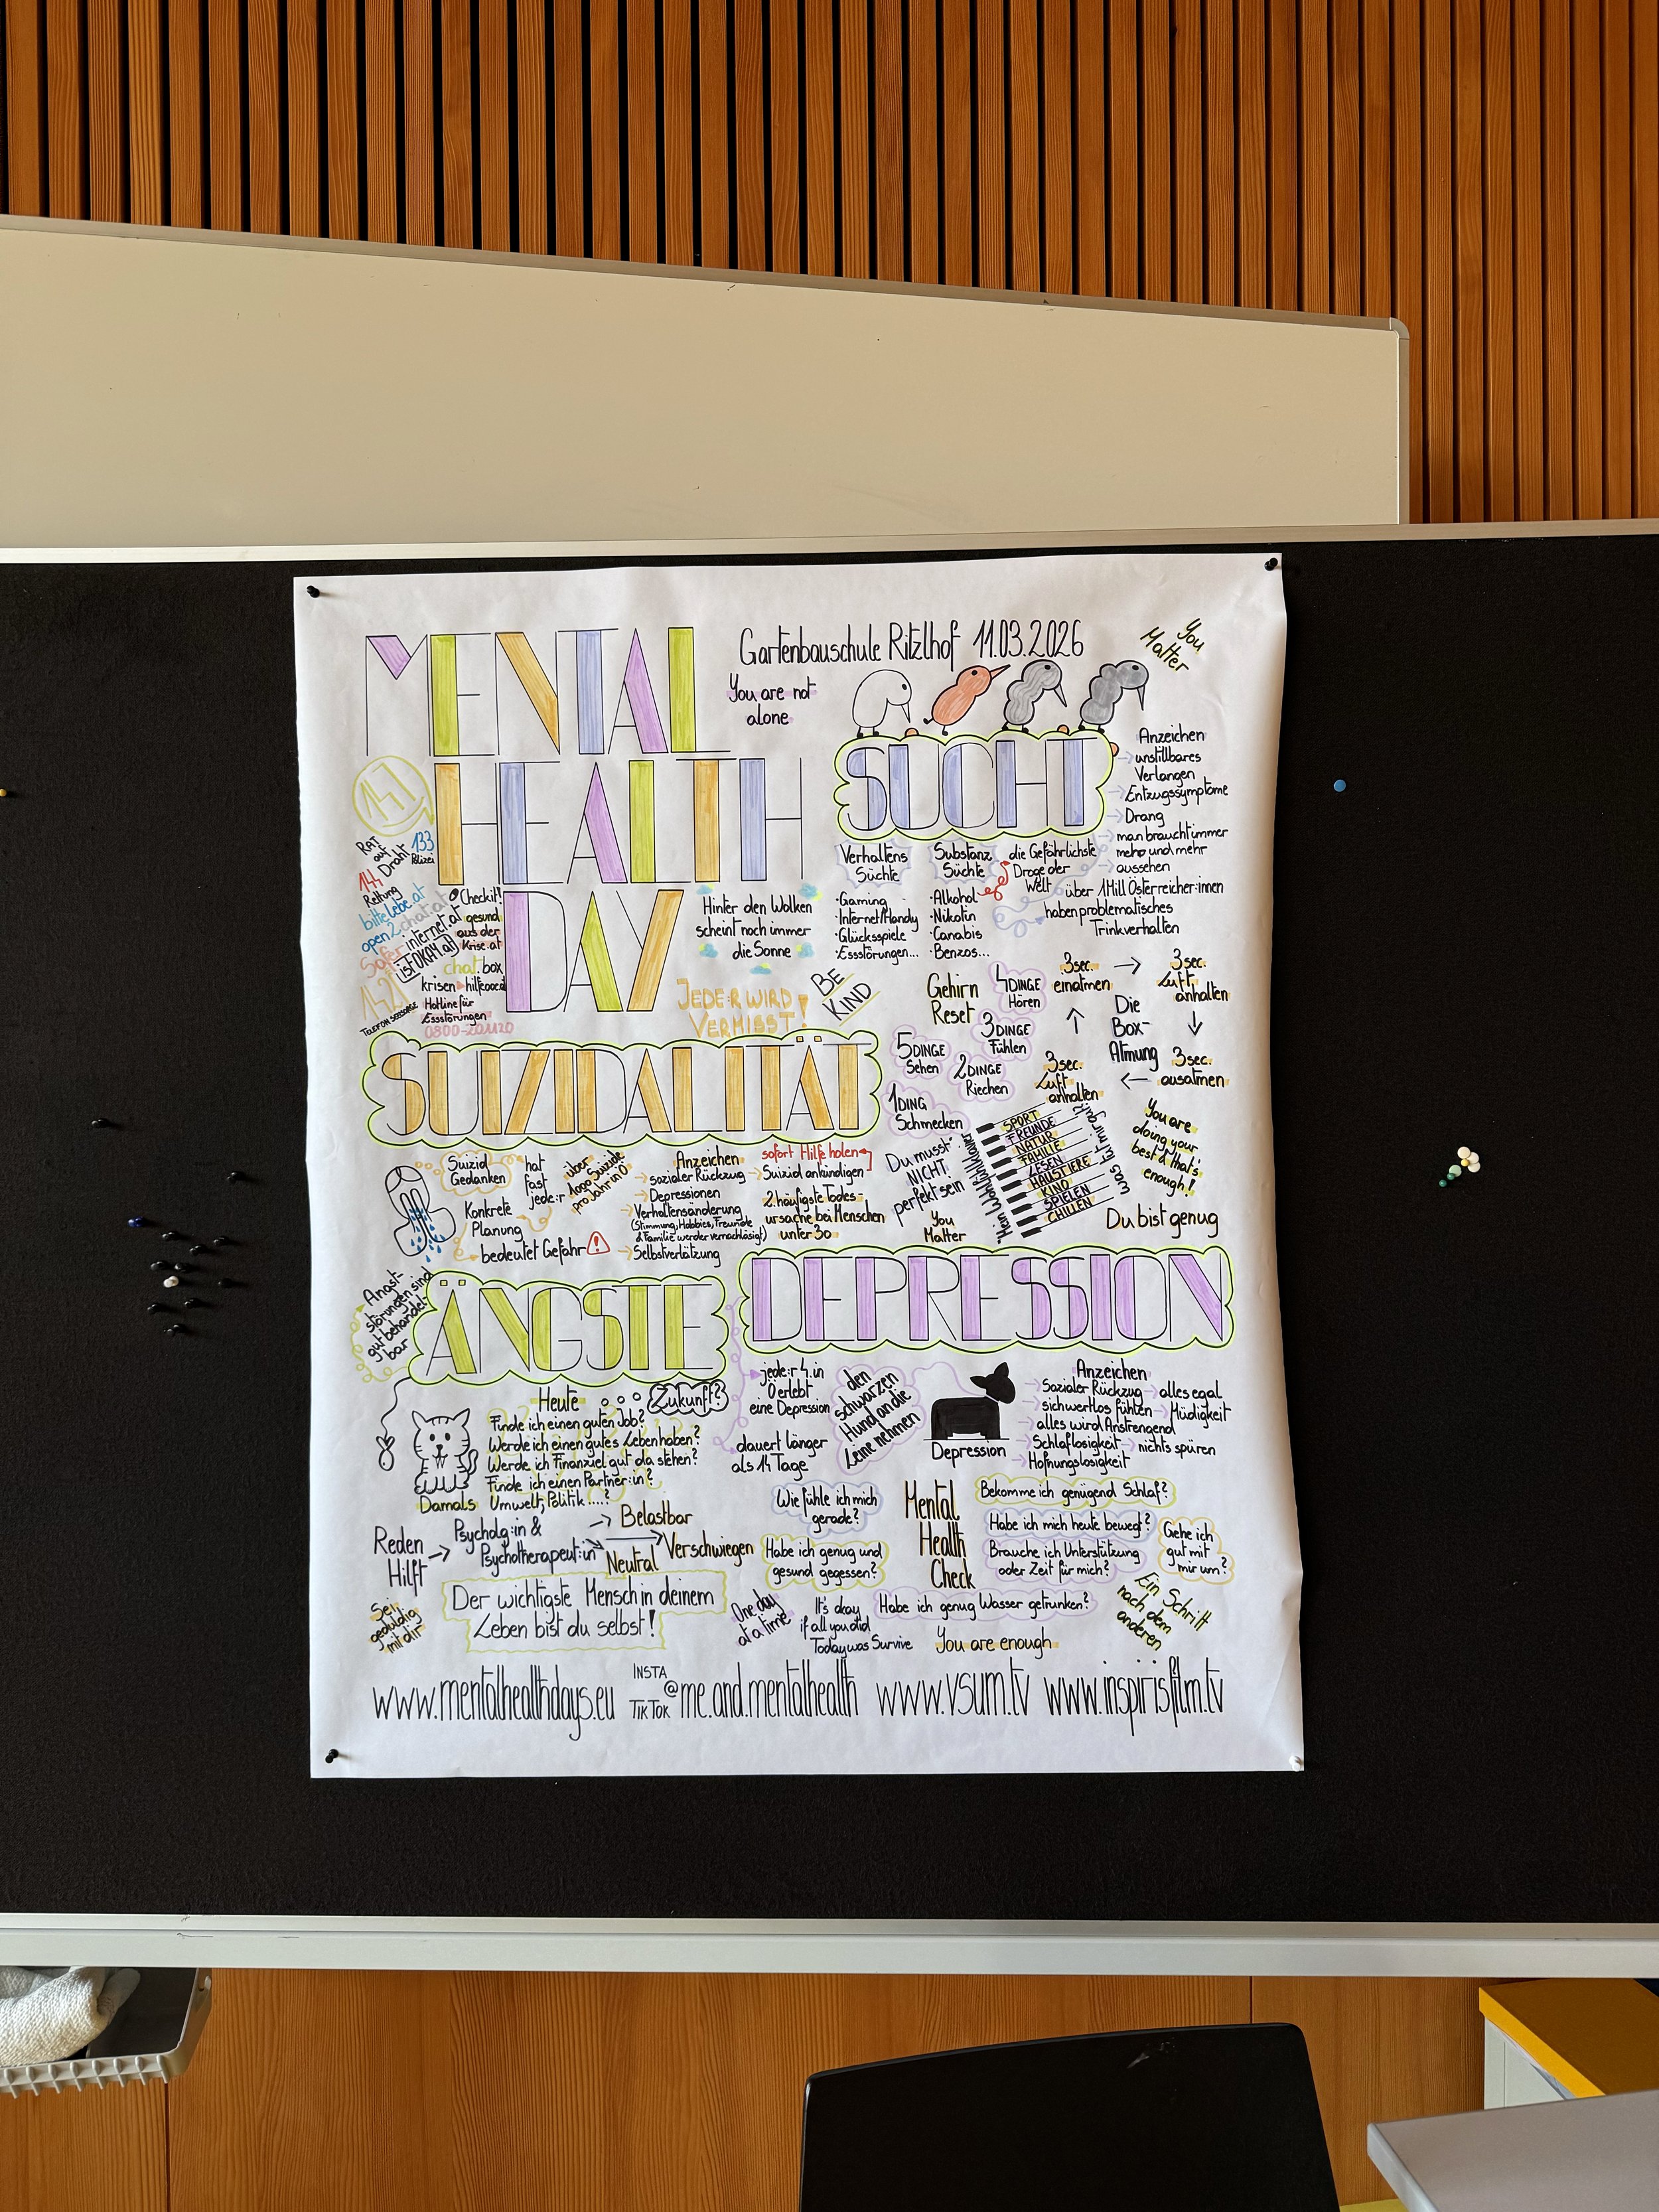 MENTAL
HEALTH
DAY
Gartenbauschule Ritzlhof 11.03.2026
You
Matter
You are not
alone
147
RAT
auf
Draht
133
Polizei
144
Rettung
bittelebe.at
open2chat.at
Safer
internet.at
isTOKAY.at
Checkit!
gesund
aus der
Krise.at
chat.box
krisen hilfeooe.at
142
TELEFON SEELSORGE
Hotline für
Essstörungen
0800-201120
Hinter den Wolken
scheint noch immer
die Sonne
JEDE:R WIRD
VERMISST!
BE
KIND
SUCHT
Anzeichen
unstillbares
Verlangen
Entzugssymptome
Drang
man braucht immer
mehr und mehr
aussehen
Verhaltens
Süchte
·Gaming
·Internet/Handy
·Glücksspiele
·Essstörungen...
Substanz
Süchte
·Alkohol
·Nikotin
·Canabis
·Benzos...
die Gefährlichste
Droge der
Welt
über 1 Mill Österreicher:innen
haben problematisches
Trinkverhalten
Gehirn
Reset
5 DINGE
Sehen
4 DINGE
Hören
3 DINGE
Fühlen
2 DINGE
Riechen
1 DING
Schmecken
3 sec.
einatmen
→
3 sec.
Luft
anhalten
↑
Die
Box-
Atmung
↓
3 sec.
Luft
anhalten
←
3 sec.
ausatmen
SUIZIDALITÄT
Suizid
Gedanken
hat
fast
jede:r
über
1000 Suizide
pro Jahr in Ö
Konkrete
Planung
bedeutet Gefahr
!
Anzeichen
→ sozialer Rückzug
→ Depressionen
→ Verhaltensänderung
(Stimmung, Hobbies, Freunde
& Familie werder vernachlässigt)
→ Selbstverlätzung
sofort Hilfe holen
→ Suizid ankündigen
2. häufigste Todes-
ursache bei Menschen
unter 30
Du musst
NICHT
perfekt sein
You
Matter
SPORT
FREUNDE
NATUR
FAMILIE
LESEN
HAUSTIERE
KINO
SPIELEN
CHILLEN
was tut mir gut?
You are
doing your
best & that's
enough!
Du bist genug
ÄNGSTE
Angst-
störungen sind
gut behandel-
bar
Heute
Zukunft?
Finde ich einen guten Job?
Werde ich einen gutes Leben haben?
Werde ich Finanziel gut da stehen?
Finde ich einen Partner:in?
Umwelt, Politik ....?
Damals
DEPRESSION
jede:r 4. in
Ö erlebt
eine Depression
dauert länger
als 14 Tage
den
schwarzen
Hund an die
Leine nehmen
Depression
Anzeichen
→ Sozialer Rückzug → alles egal
→ sichwertlos fühlen → Müdigkeit
→ alles wird Anstrengend
→ Schlaflosigkeit → nichts spüren
→ Hofnungslosigkeit
Reden
Hilft
→
Psycholg:in &
Psychotherapeut:in
→ Belastbar
→ Verschwiegen
Neutral
Der wichtigste Mensch in deinem
Leben bist du selbst!
Sei
geduldig
mit dir
Mental
Health
Check
Wie fühle ich mich
gerade?
Bekomme ich genügend Schlaf?
Habe ich mich heute bewegt?
Habe ich genug und
gesund gegessen?
Brauche ich Unterstützung
oder Zeit für mich?
Gehe ich
gut mit
mir um?
Habe ich genug Wasser getrunken?
One day
at a time
It's okay
if all you did
Today was Survive
You are enough
Ein Schritt
nach dem
anderen
www.mentalhealthdays.eu
INSTA
TIK TOK
@me.and.mentalhealth
www.vsum.tv
www.inspirisfilm.tv